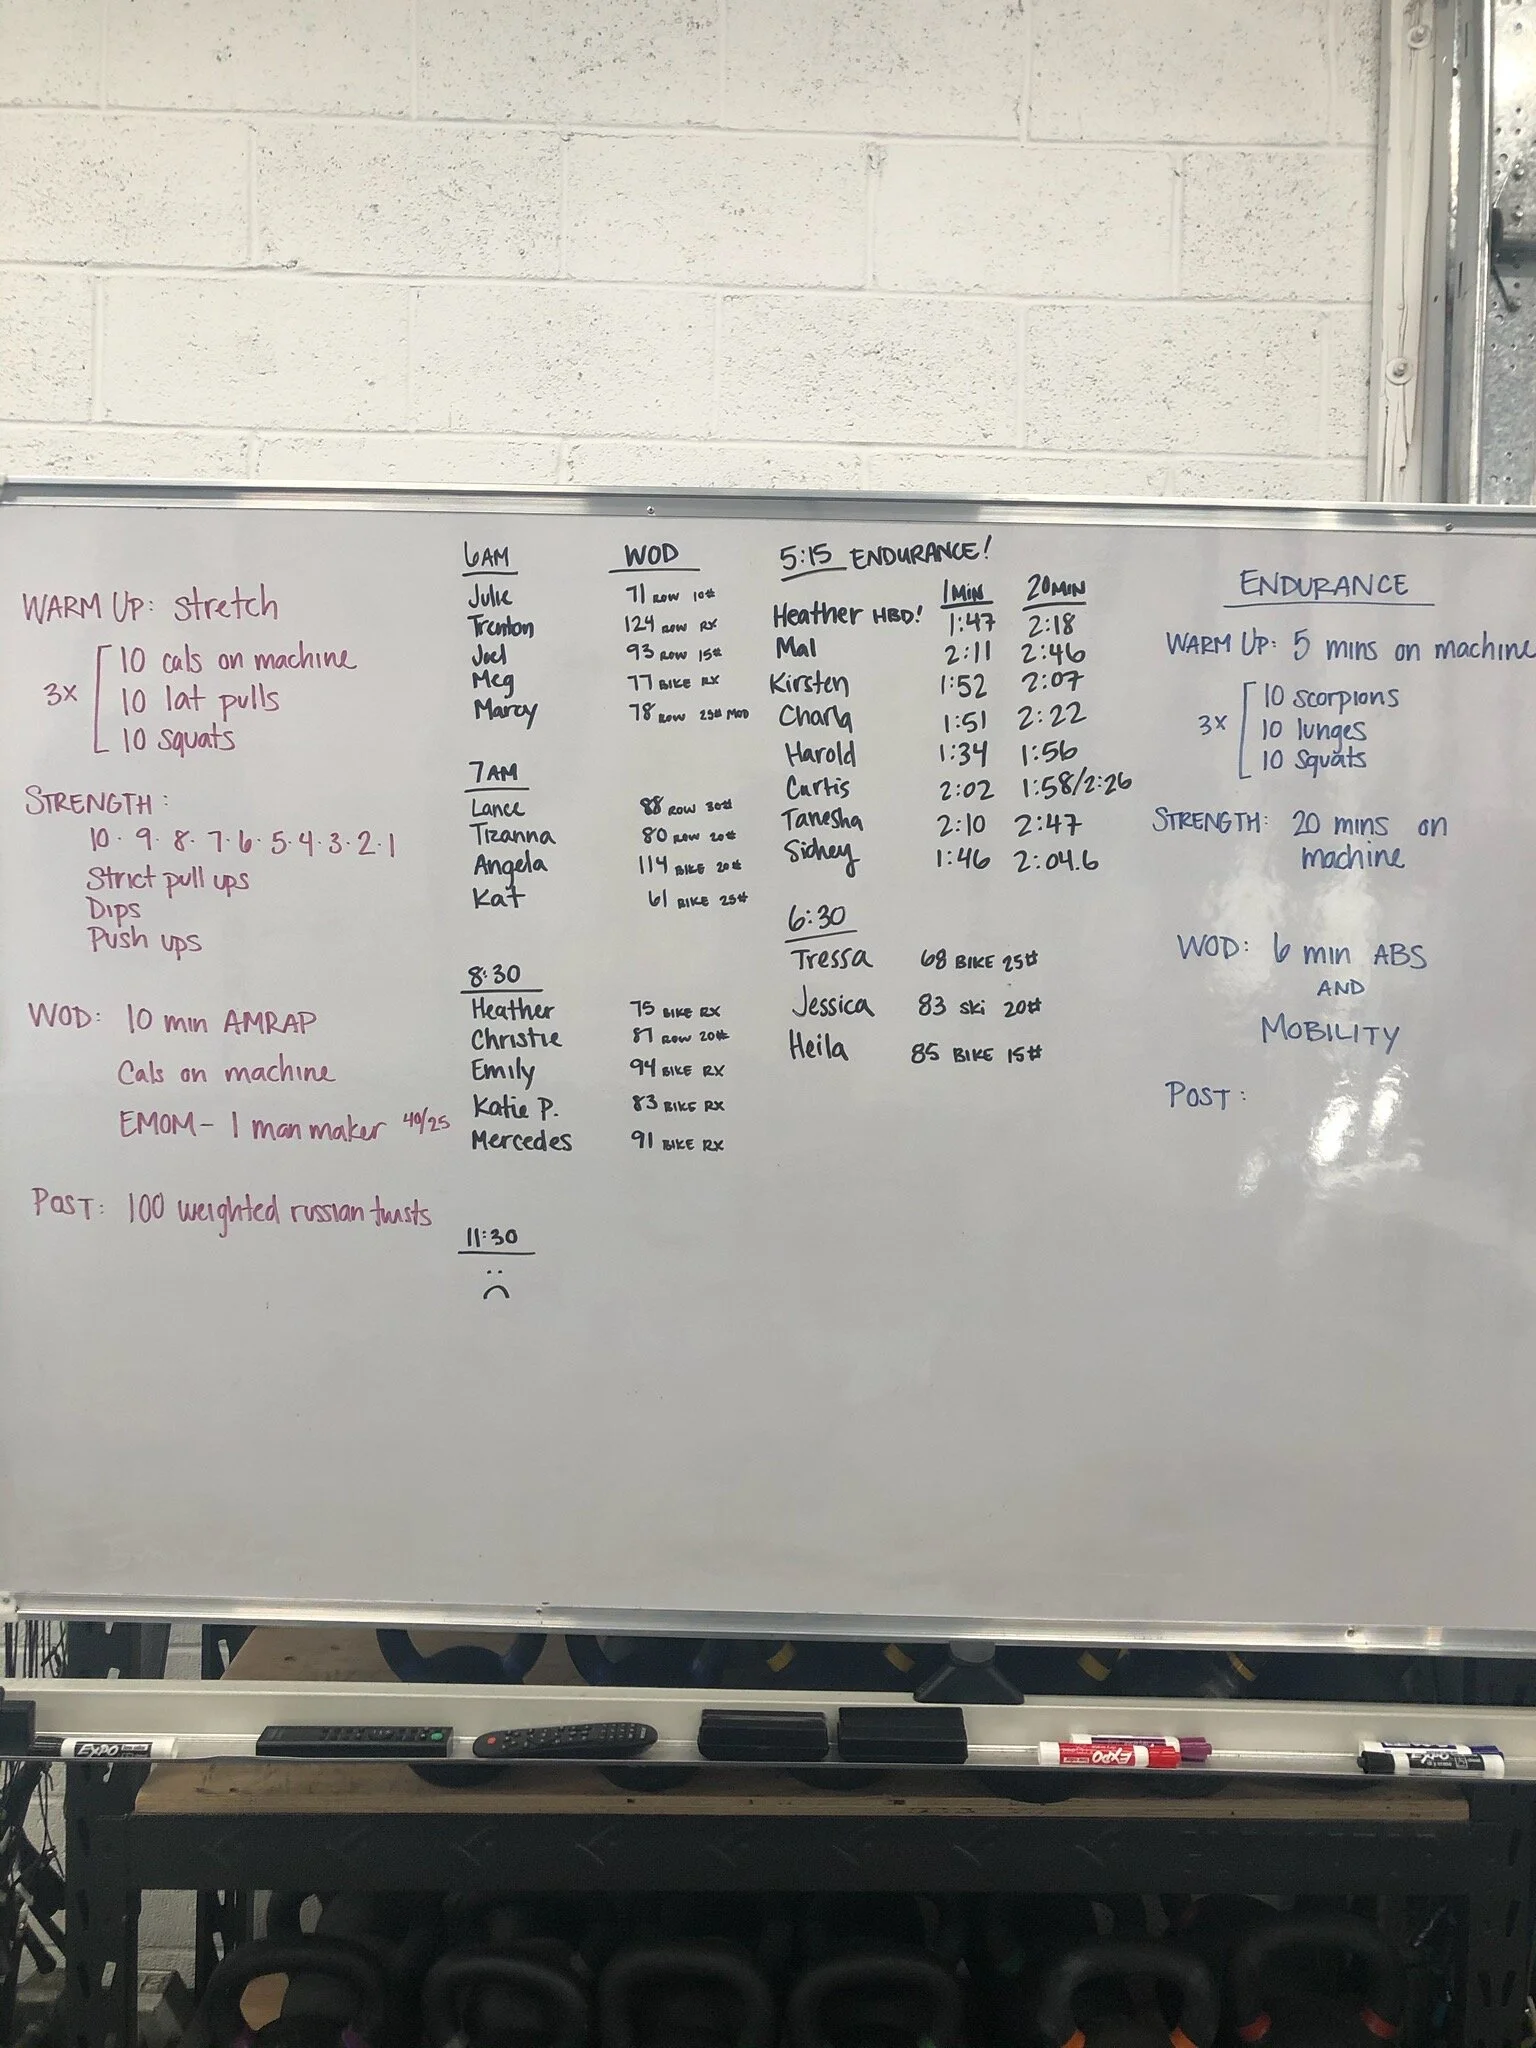 WARM UP: stretch
3x
10 cals on machine
10 lat pulls
10 squats
STRENGTH:
10·9·8·7·6·5·4·3·2·1
Strict pull ups
Dips
Push ups
WOD: 10 min AMRAP
Cals on machine
EMOM- 1 man maker 40/25
POST: 100 weighted russian twists
6AM WOD
Julie 71 ROW 10#
Trenton 124 ROW RX
Joel 93 ROW 15#
Meg 77 BIKE RX
Marcy 78 ROW 25# MOD
7AM
Lance 88 ROW 30#
Tizanna 80 ROW 20#
Angela 114 BIKE 20#
Kat 61 BIKE 25#
8:30
Heather 75 BIKE RX
Christie 87 ROW 20#
Emily 94 BIKE RX
Katie P. 83 BIKE RX
Mercedes 91 BIKE RX
11:30
5:15 ENDURANCE!
1MIN 20MIN
Heather HBD! 1:47 2:18
Mal 2:11 2:46
Kirsten 1:52 2:07
Charla 1:51 2:22
Harold 1:34 1:56
Curtis 2:02 1:58/2:26
Tanesha 2:10 2:47
Sidney 1:46 2:04.6
6:30
Tressa 68 BIKE 25#
Jessica 83 Ski 20#
Heila 85 BIKE 15#
ENDURANCE
WARM UP: 5 mins on machine
3x
10 scorpions
10 lunges
10 squats
STRENGTH: 20 mins on
machine
WOD: 6 min ABS
AND
MOBILITY
POST:
EXPO
EXPO
EXPO